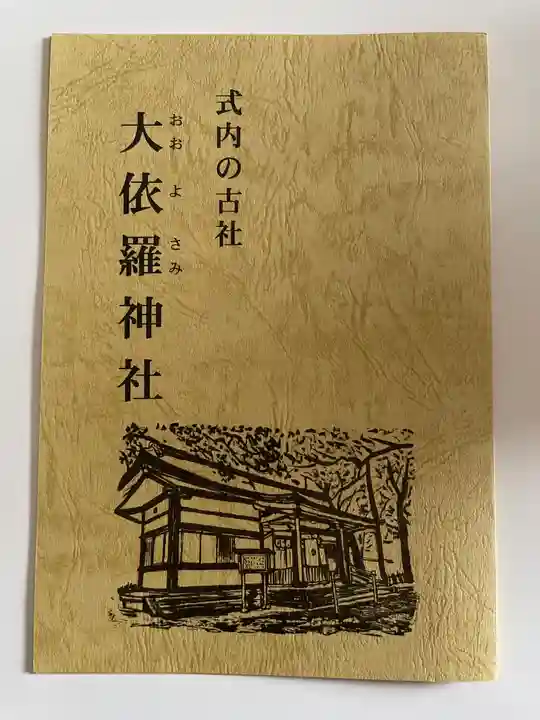 式内の古社
大依羅神社
おお よ さみ